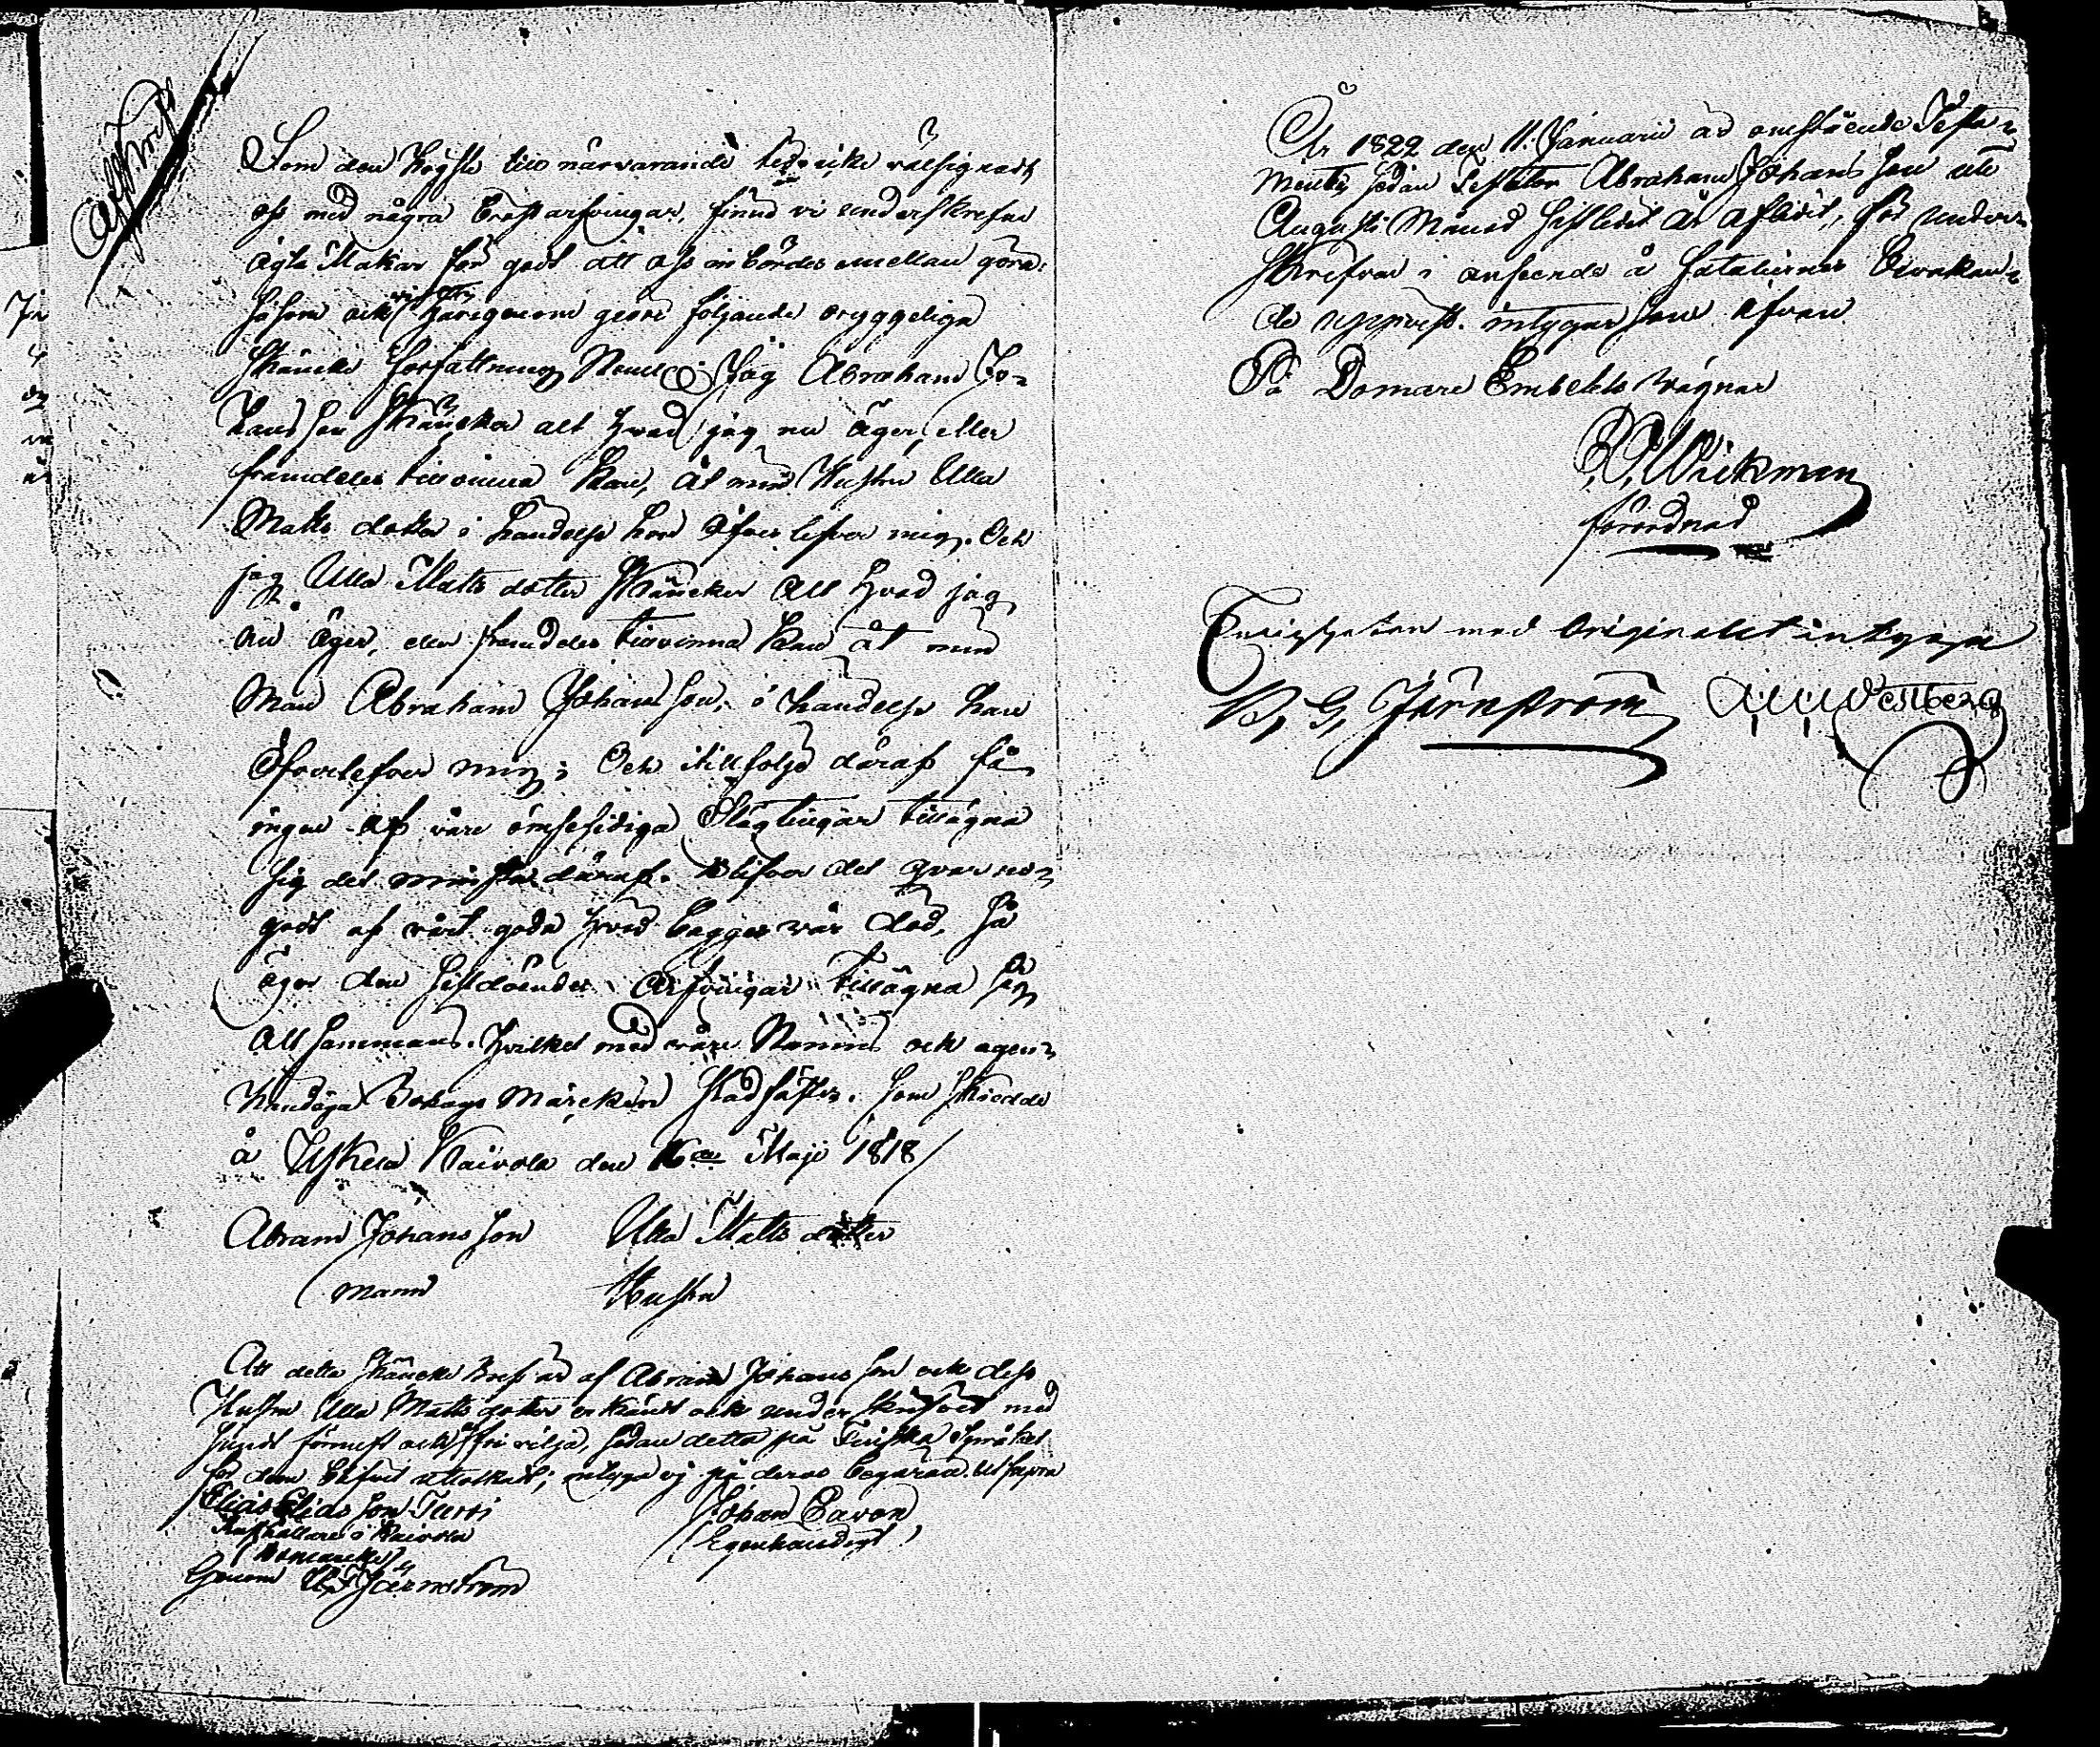 Afskrift
Som den Högste till närvarande tid icke välsignadt
oss med några Bröstarfvingar, finna vi underskrefne
ägta Makar för godt att oss inbördes emellan göra,
såsom ock vi härigenom giöre följande oryggeliga
Skäncks författning Neml: Jag Abraham Jo-
hansson Skäncker alt hvad jag nu äger, eller
framdeles tillvinna kan, åt min Hustru Ulla
Matts dotter i händelse hon öfver lefver mig. Och
jag Ulla Matts dotter Skäncker Allt hvad jag
nu äger, eller framdeles tillvinna kan åt min
Man Abraham Johansson, i händelse han
Öfverlefver mig; Och i tillfölje däraf få
ingen af våre ömsesidiga Slägtingar tillägna
sig det minsta däraf. Blifver det qvar nå-
godt af vårt goda hvad bägges vår död, så
äger den sistdöendes Arfvingar tillägna sig
Allsammans. Hvilket med våre Namns och egen-
händiga Bomärken Stadfästes. Som skiedde
å Uskela Kaivola den 16de Maji 1818
Abram Johansson Ulla Matts dotter
Mann Hustru
Att detta Skäncke Bref är af Abram Johansson och dess
Hustru Ulla Matts dotter erkändt och underskrifvet med
sundt förnuft och fri vilja, sedan detta på Finska Språket
för dem blifvit uttolkat; intyga vi på deras begäran. Ut supra
Elias Eliasson Turri Johan
i Kaivola (Egenhändigt)
(Bomärke)
Genom Järnström
År 1822 den 11. Januarii är omstående Testa-
mente, sedan Testator Abraham Johansson uti
Augusti Månad sistledit År aflidit, för under-
skrefven i anseende å Fataliernes Bevakan-
de uppvist. intygar som ofvan
På Domare Embetets vägnar
Wickman
förordnad
Enligheten med Originalet intyga
B, G, Järnström Westberg